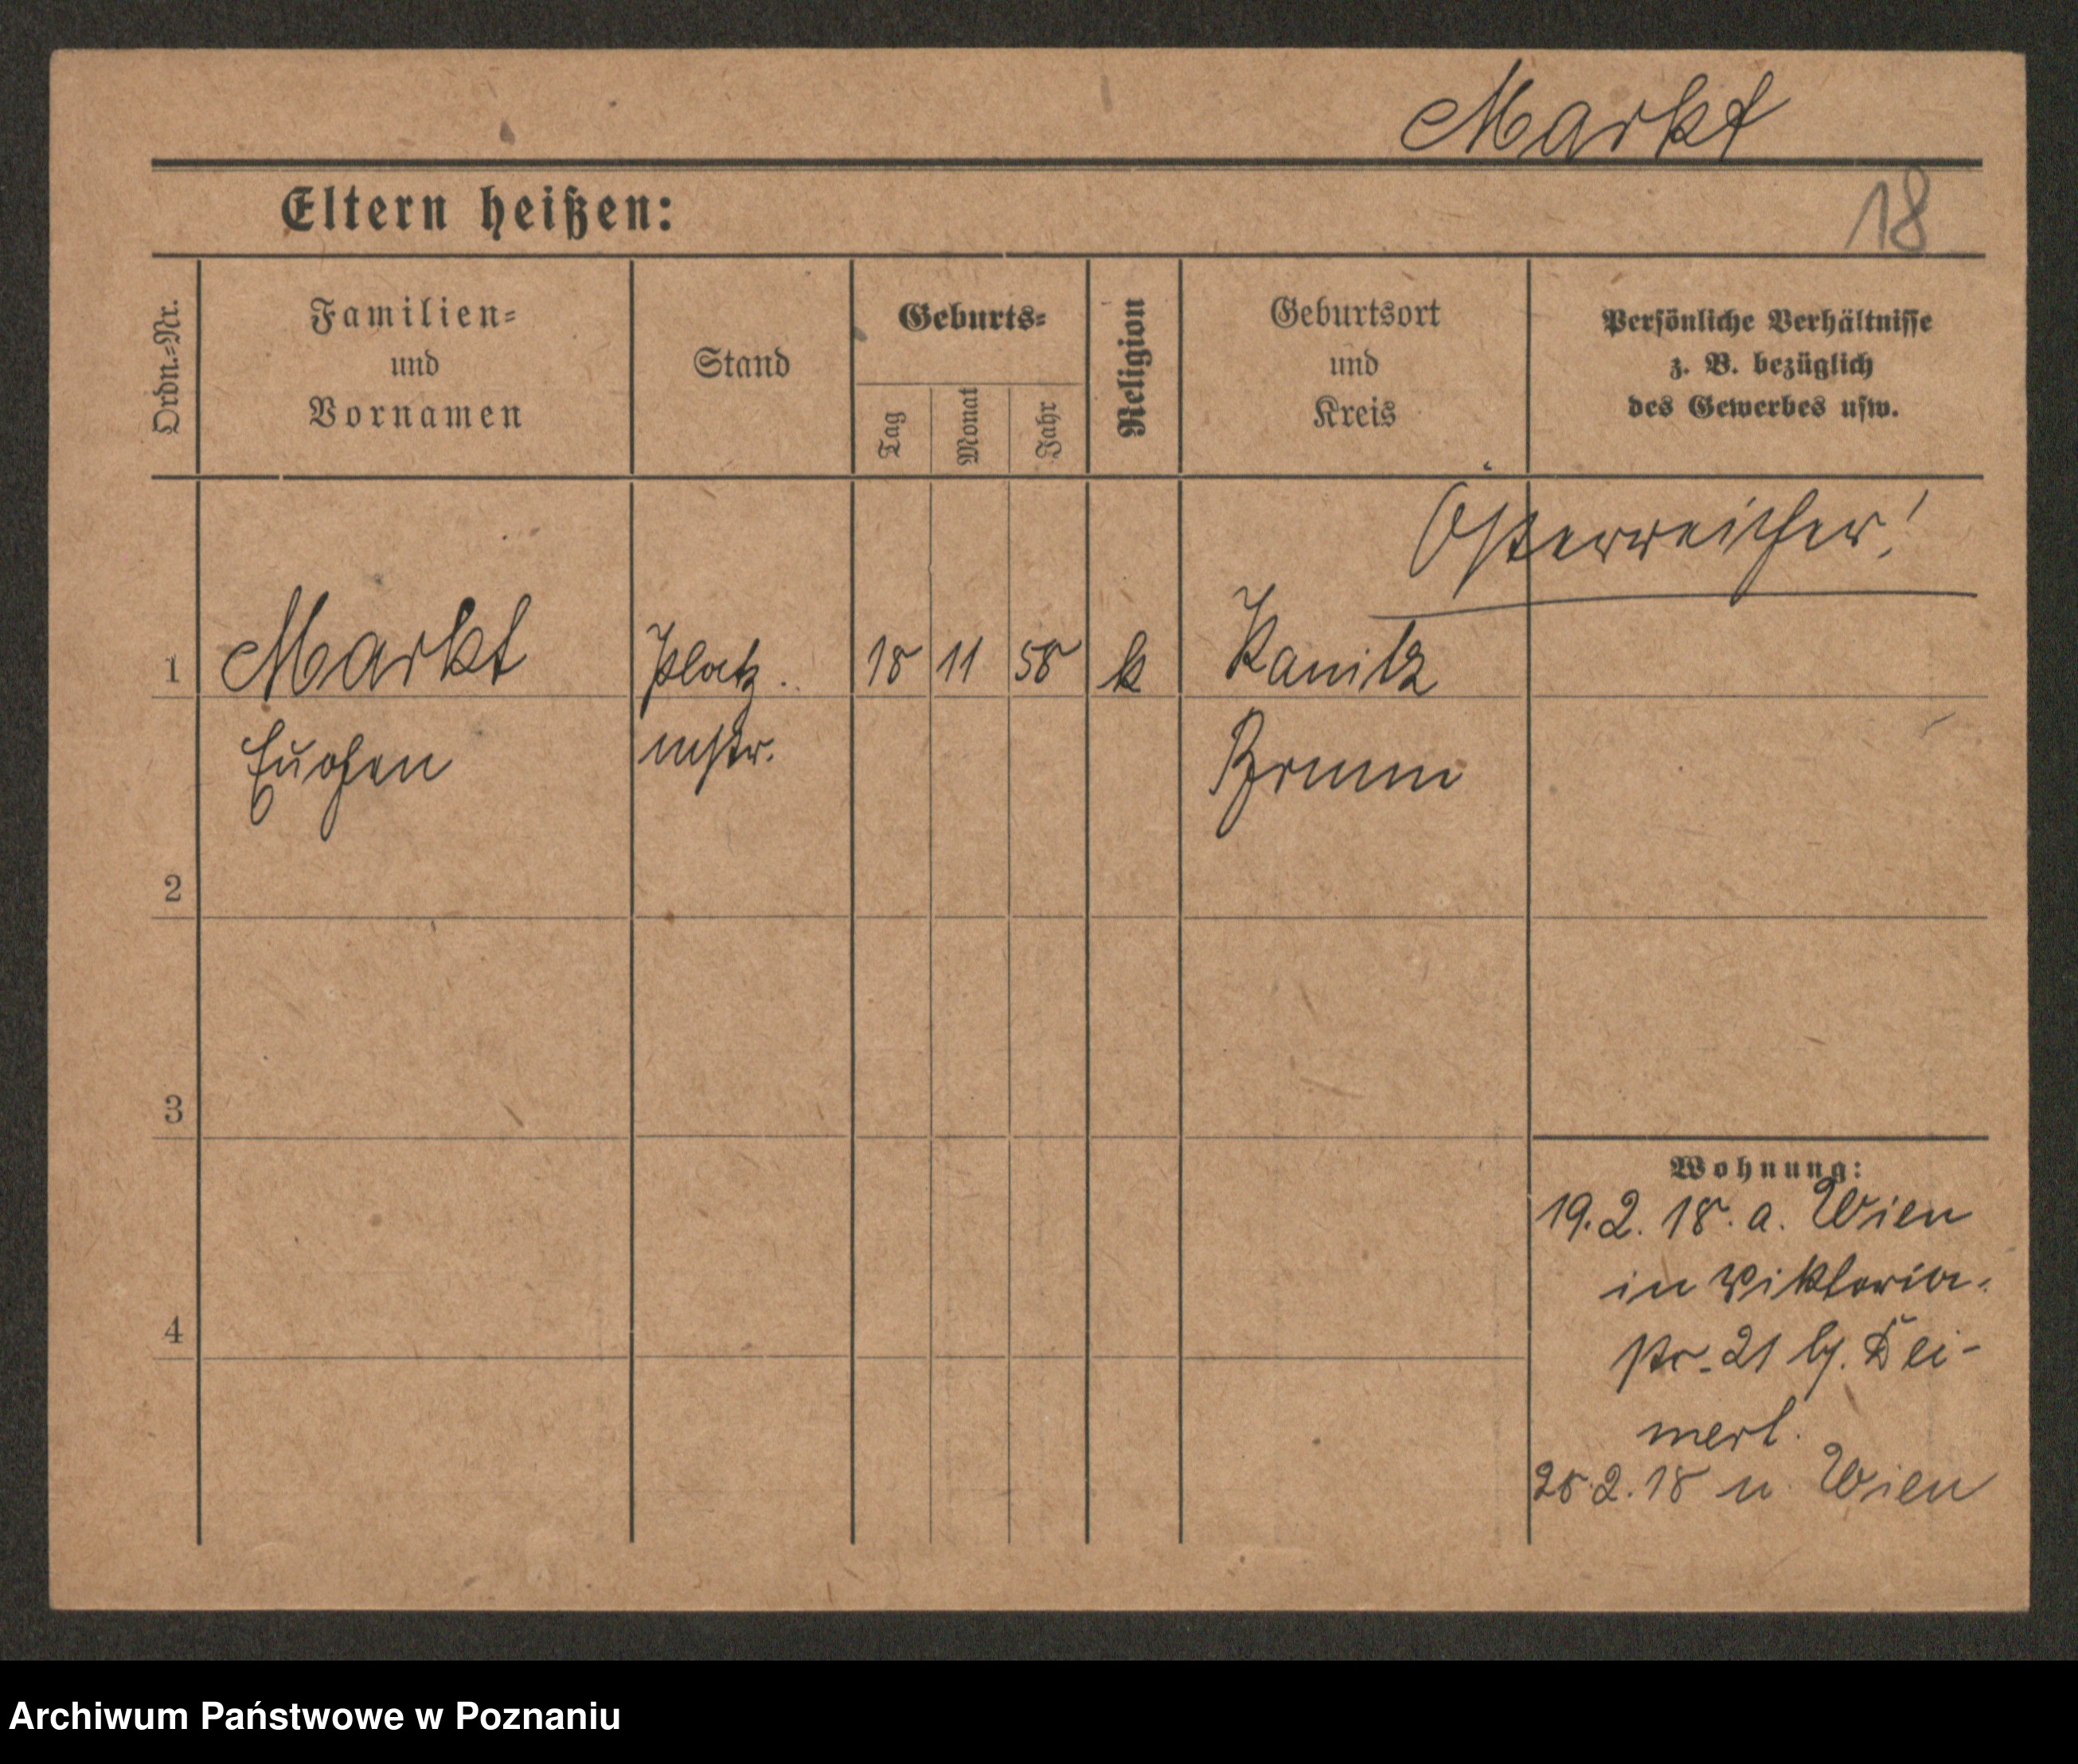 Markt
Eltern heißen:
18
Ordn.-Nr.
Familien-
und
Vornamen
Stand
Geburts-
Tag
Monat
Jahr
Religion
Geburtsort
und
Kreis
Persönliche Verhältnisse
z. B. bezüglich
des Gewerbes usw.
Österreicher!
1 Markt Platz. 18 11 58 k Kanitz
Eugen mstr. Brünn
2
3
4
Wohnung:
19.2.18. a. Wien
in Viktoria-
str. 21 b. Dei-
merl.
28.2.18 n. Wien
Archiwum Państwowe w Poznaniu